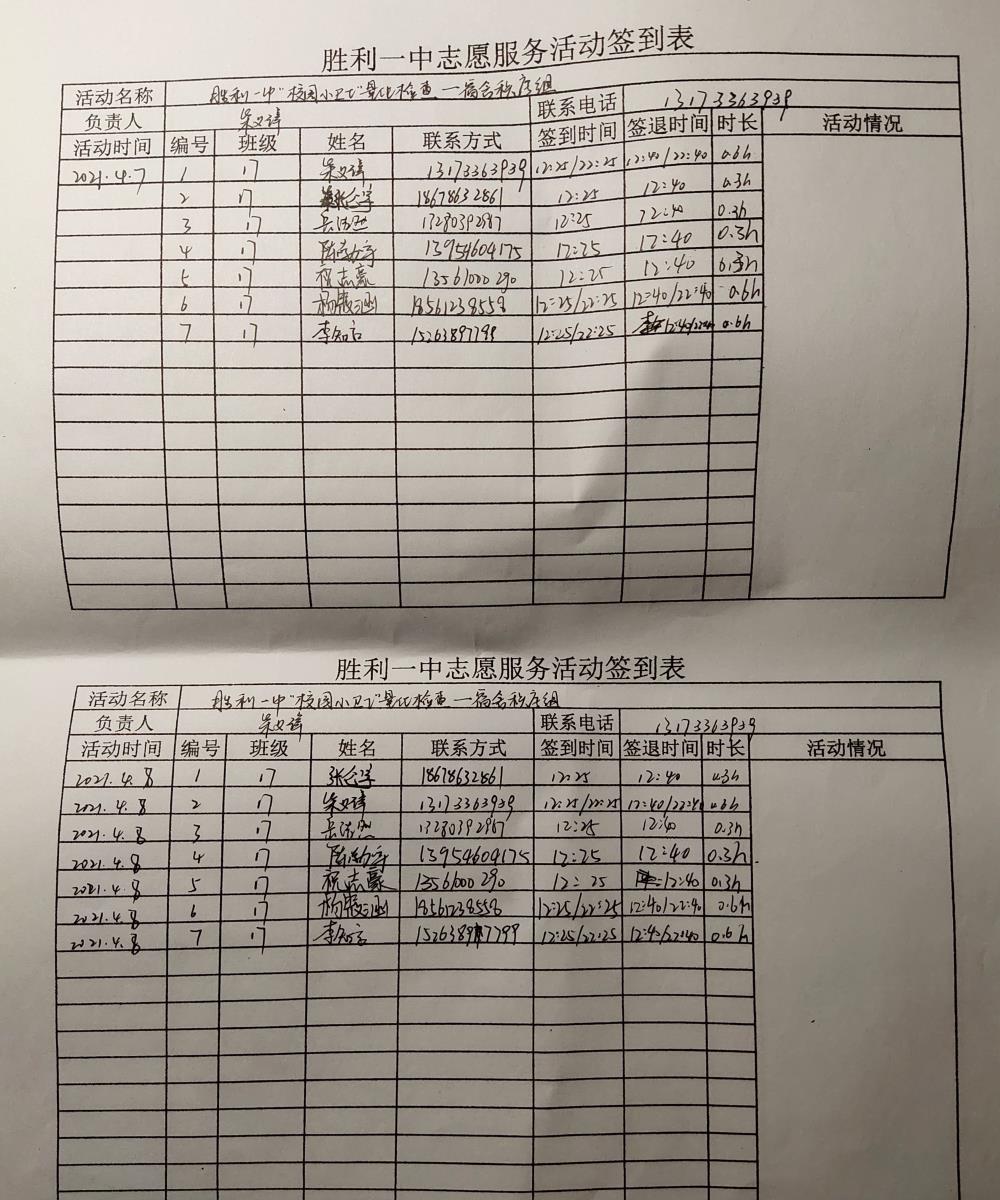 胜利一中志愿服务活动签到表
活动名称 胜利一中"校园小卫士"量化检查—宿舍秩序组
负责人 联系电话 13173363939
活动时间 编号 班级 姓名 联系方式 签到时间 签退时间 时长 活动情况
2021.4.7 1 17 13173363939 12:25/22:25 12:40/22:40 0.6h
2 17 18678632861 12:25 12:40 0.3h
3 17 13280392987 12:25 12:40 0.3h
4 17 13954604175 12:25 12:40 0.3h
5 17 祝志豪 13561000290 12:25 12:40 0.3h
6 17 18561238558 12:25/22:25 12:40/22:40 0.6h
7 17 李知言 15263897799 12:25/22:25 12:40/22:40 0.6h
胜利一中志愿服务活动签到表
活动名称 胜利一中"校园小卫士"量化检查—宿舍秩序组
负责人 联系电话 13173363939
活动时间 编号 班级 姓名 联系方式 签到时间 签退时间 时长 活动情况
2021.4.8 1 17 18678632861 12:25 12:40 0.3h
2021.4.8 2 17 13173363939 12:25/22:25 12:40/22:40 0.6h
2021.4.8 3 17 13280392987 12:25 12:40 0.3h
2021.4.8 4 17 13954604175 12:25 12:40 0.3h
2021.4.8 5 17 祝志豪 13561000290 12:25 12:40 0.3h
2021.4.8 6 17 18561238558 12:25/22:25 12:40/22:40 0.6h
2021.4.8 7 17 李知言 15263897799 12:25/22:25 12:40/22:40 0.6h